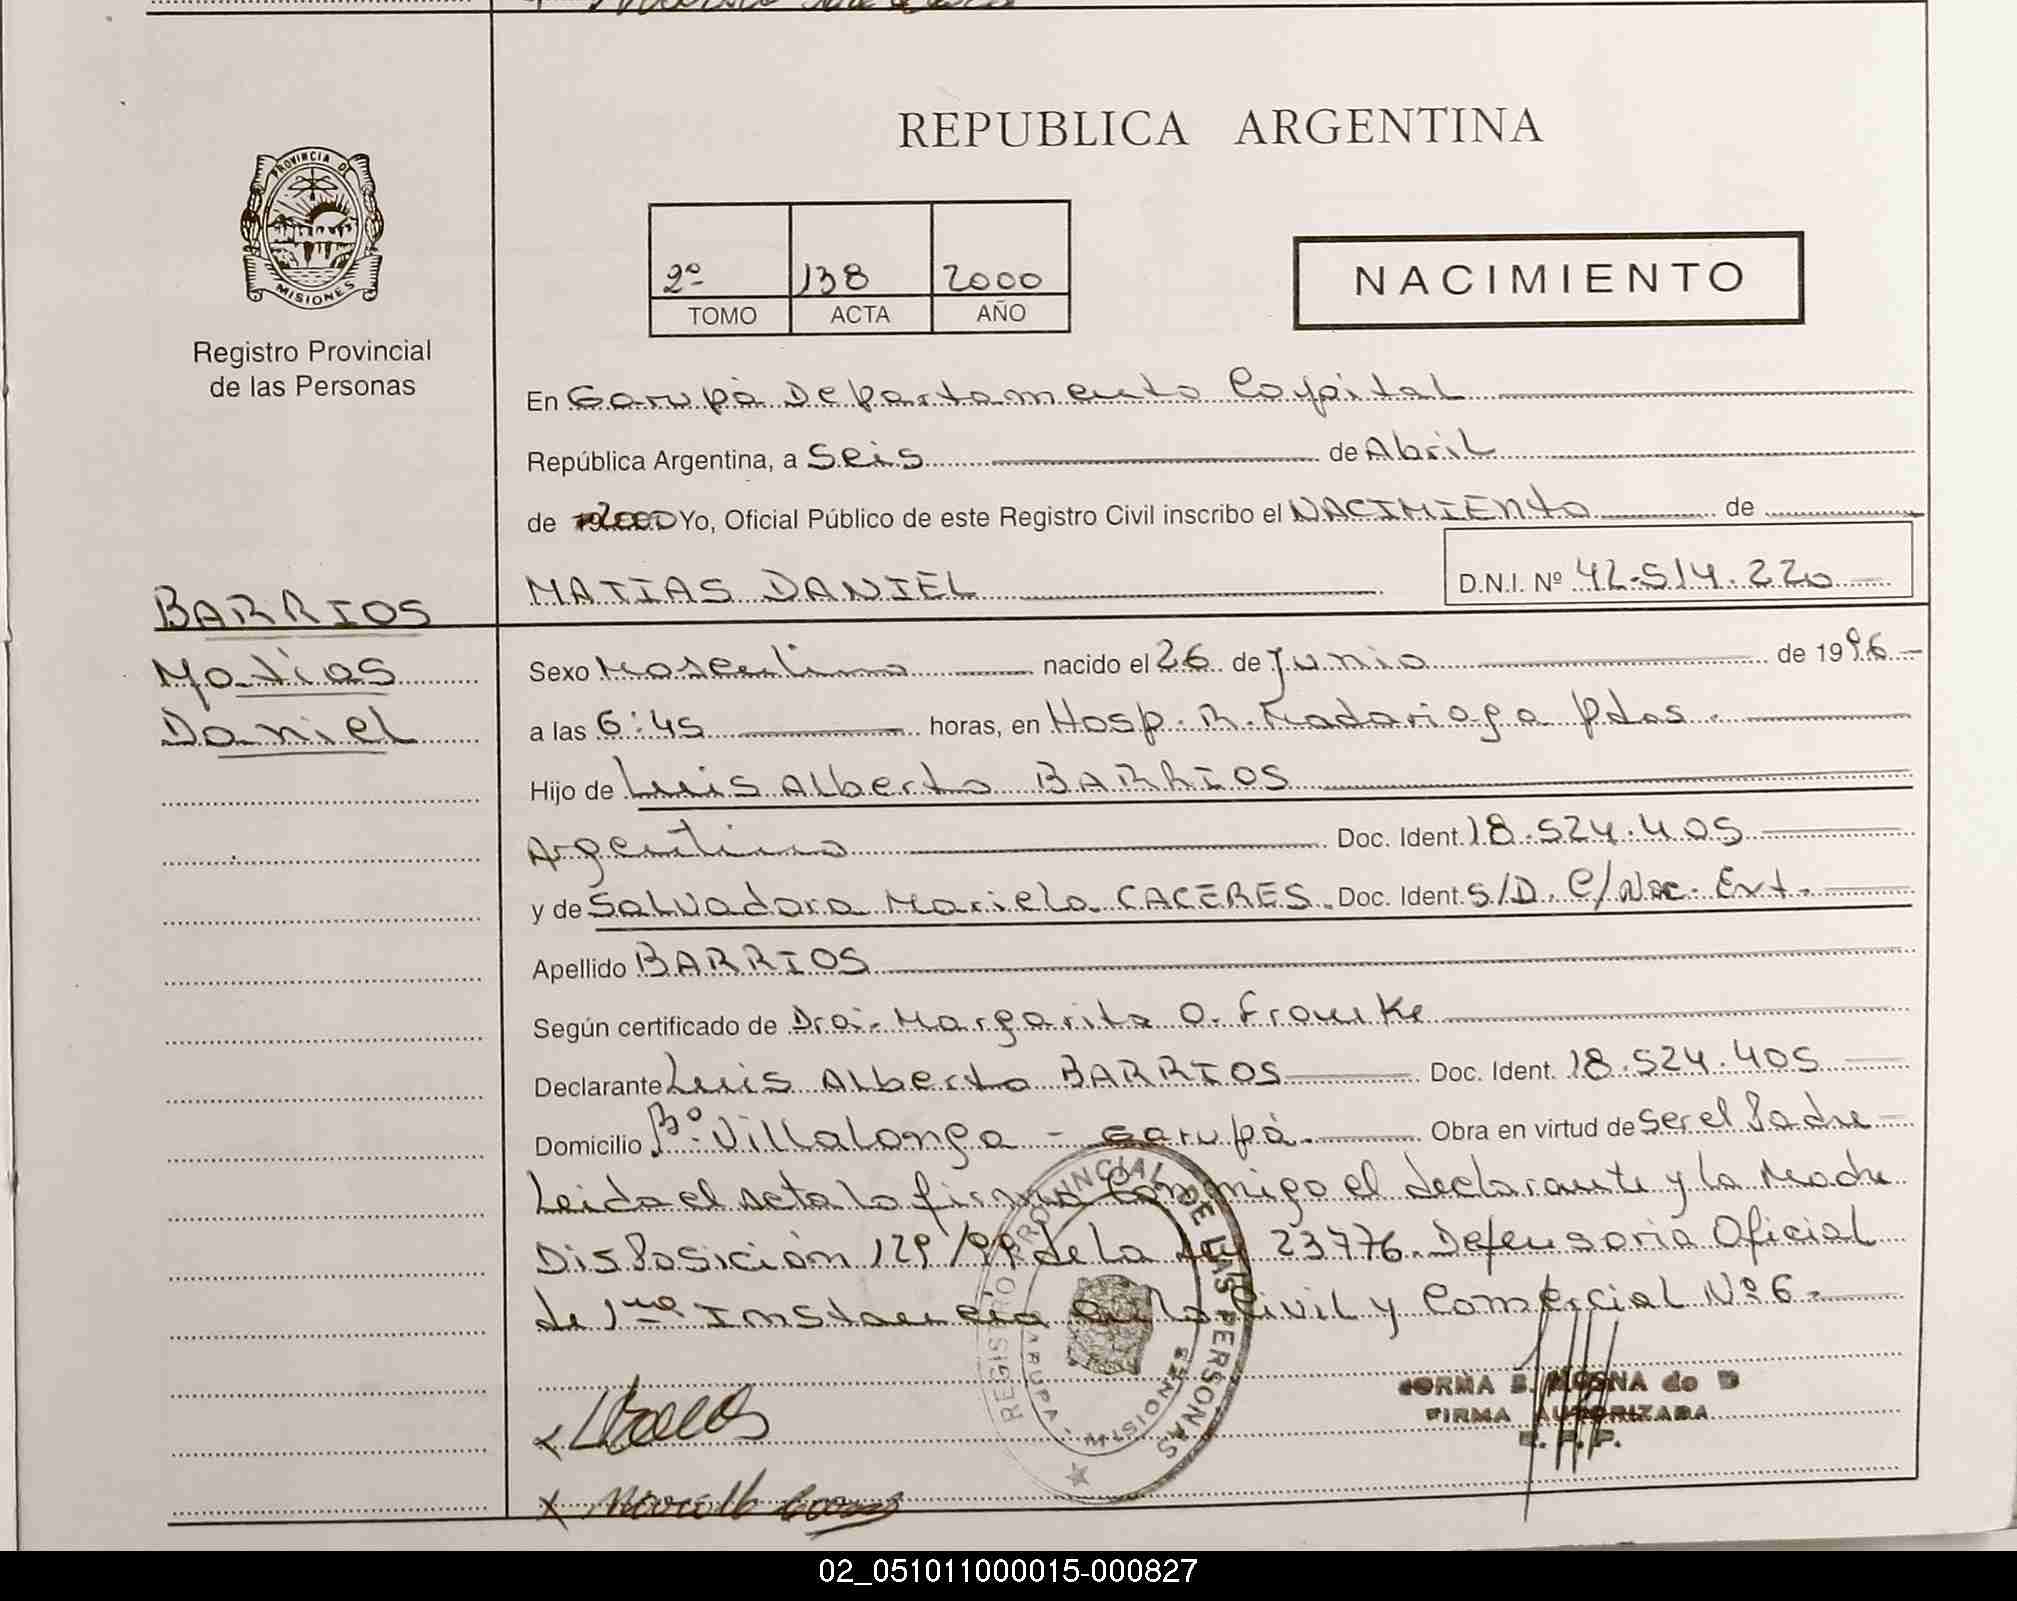 PROVINCIA DE
MISIONES
Registro Provincial
de las Personas
REPUBLICA ARGENTINA
2º 138 2000
TOMO ACTA AÑO
NACIMIENTO
En Garupà Departamento Capital
República Argentina, a Seis de Abril
de 2000 Yo, Oficial Público de este Registro Civil inscribo el NACIMIENto de
MATIAS DANIEL D.N.I. Nº 42.514.220
BARRIOS
Matias
Daniel
Sexo Masculino nacido el 26 de Junio de 1996
a las 6:45 horas, en Hosp. R. Madariaga Pdas.
Hijo de Luis Alberto BARRIOS
Argentino Doc. Ident. 18.524.405
y de Salvadora Mariela CACERES. Doc. Ident. S/D. C/Nac. Ext.
Apellido BARRIOS
Según certificado de Dra. Margarita O. Franke
Declarante Luis Alberto BARRIOS Doc. Ident. 18.524.405
Domicilio Bº. Villalonga - Garupà. Obra en virtud de ser el Padre
Leida el acta la firman Conmigo el declarante y la Madre
Disposición 129/99 de la Ley 23776. Defensoria Oficial
de 1ra Instancia en lo Civil y Comercial Nº 6
REGISTRO PROVINCIAL DE LAS PERSONAS
GARUPA - MISIONES
FIRMA AUTORIZADA
02_051011000015-000827